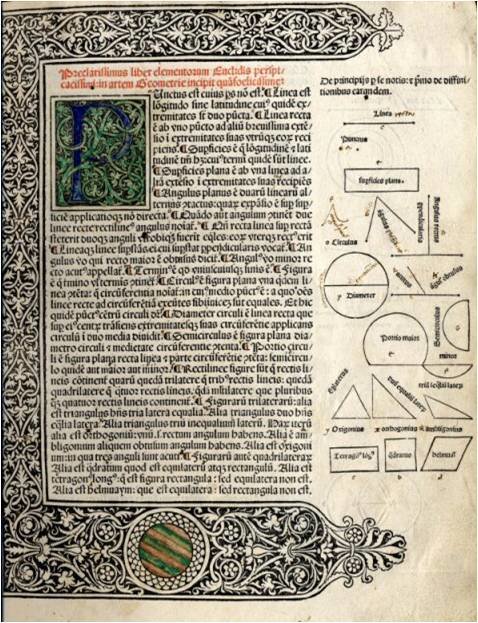 Preclarissimus liber elementorum Euclidis perspi/
cacissimi: in artem Geometrie incipit quāfoelicissime:
Punctus est cuius ps nō est. ¶ Linea est
lōgitudo sine latitudine cuiꝰ quidē ex/
tremitates st duo pūcta. ¶ Linea recta
ē ab vno pūcto ad aliū breuissima extē/
sio i extremitates suas vtrūqꝫ eoꝝ reci
piens. ¶ Supficies ē q̄ lōgitudinē ⁊ lati
tudinē tm̄ hꝫ: cuiꝰ termi quidē sūt linee.
¶ Supficies plana ē ab vna linea ad a/
liā extēsio i extremitates suas recipiēs
¶ Angulus planus ē duarū linearū al/
ternus ꝯtactus: quaꝝ expāsio ē sup sup/
ficiē applicatioqꝫ nō directa. ¶ Quādo aūt angulum ꝯtinēt due
linee recte rectilineꝰ angulus noīat. ¶ Qn̄ recta linea sup rectā
steterit duoqꝫ anguli vtrobiqꝫ fuerit eq̄les: eoꝝ vterqꝫ rectꝰ erit
¶ Lineaqꝫ linee supstās ei cui supstat ppendicularis vocat. ¶ An
gulus vo qui recto maior ē obtusus dicit. ¶ Angulꝰ vo minor re
cto acutꝰ appellat. ¶ Terminꝰ ē qd vniuscuiusqꝫ finis ē. ¶ Figura
ē q̄ tmino vl termis ꝯtinet. ¶ Circulꝰ ē figura plana vna qdem li/
nea ꝯtēta: q̄ circūferentia noīat: in cuiꝰ medio pūctꝰ ē: a quo oēs
linee recte ad circūferētiā exeūtes sibiinuicē sūt equales. Et hic
quidē pūctꝰ cētrū circuli dr̄. ¶ Diameter circuli ē linea recta que
sup eiꝰ centꝝ trāsiens extremitatesqꝫ suas circūferētie applicans
circulū i duo media diuidit. ¶ Semicirculus ē figura plana dia/
metro circuli ⁊ medietate circūferentie ꝯtenta. ¶ Portio circu/
li ē figura plana recta linea ⁊ parte circūferētie ꝯtēta: semicircu/
lo quidē aut maior aut minor. ¶ Rectilinee figure sūt q̄ rectis li/
neis cōtinent quarū quedā trilatere q̄ tribꝰ rectis lineis: quedā
quadrilatere q̄ qtuor rectis lineis. qdā mltilatere que pluribus
qꝫ quatuor rectis lineis continent. ¶ Figurarū trilaterarū: alia
est triangulus hn̄s tria latera equalia. Alia triangulus duo hn̄s
eq̄lia latera. Alia triangulus triū inequaliū laterū. Haꝝ iterū
alia est orthogoniū: vnū .s. rectum angulum habens. Alia ē am/
bligonium aliquem obtusum angulum habens. Alia est oxigoni
um: in qua tres anguli sunt acuti. ¶ Figurarū autē quadrilateraꝝ
Alia est qdratum quod est equilaterū atqꝫ rectangulū. Alia est
tetragonꝰ longꝰ: q̄ est figura rectangula: sed equilatera non est.
Alia est helmuaym: que est equilatera: sed rectangula non est.
De principijs p se notis: ⁊ pmo de diffini/
tionibus earundem.
Linea
Punctus
supficies plana.
Circulus
Diameter
Portio maior
Semicirculus
minor
Oxigonus
orthogonius
ambligonius
Tetragonꝰ lōgꝰ
q̄dratus
helmuaym